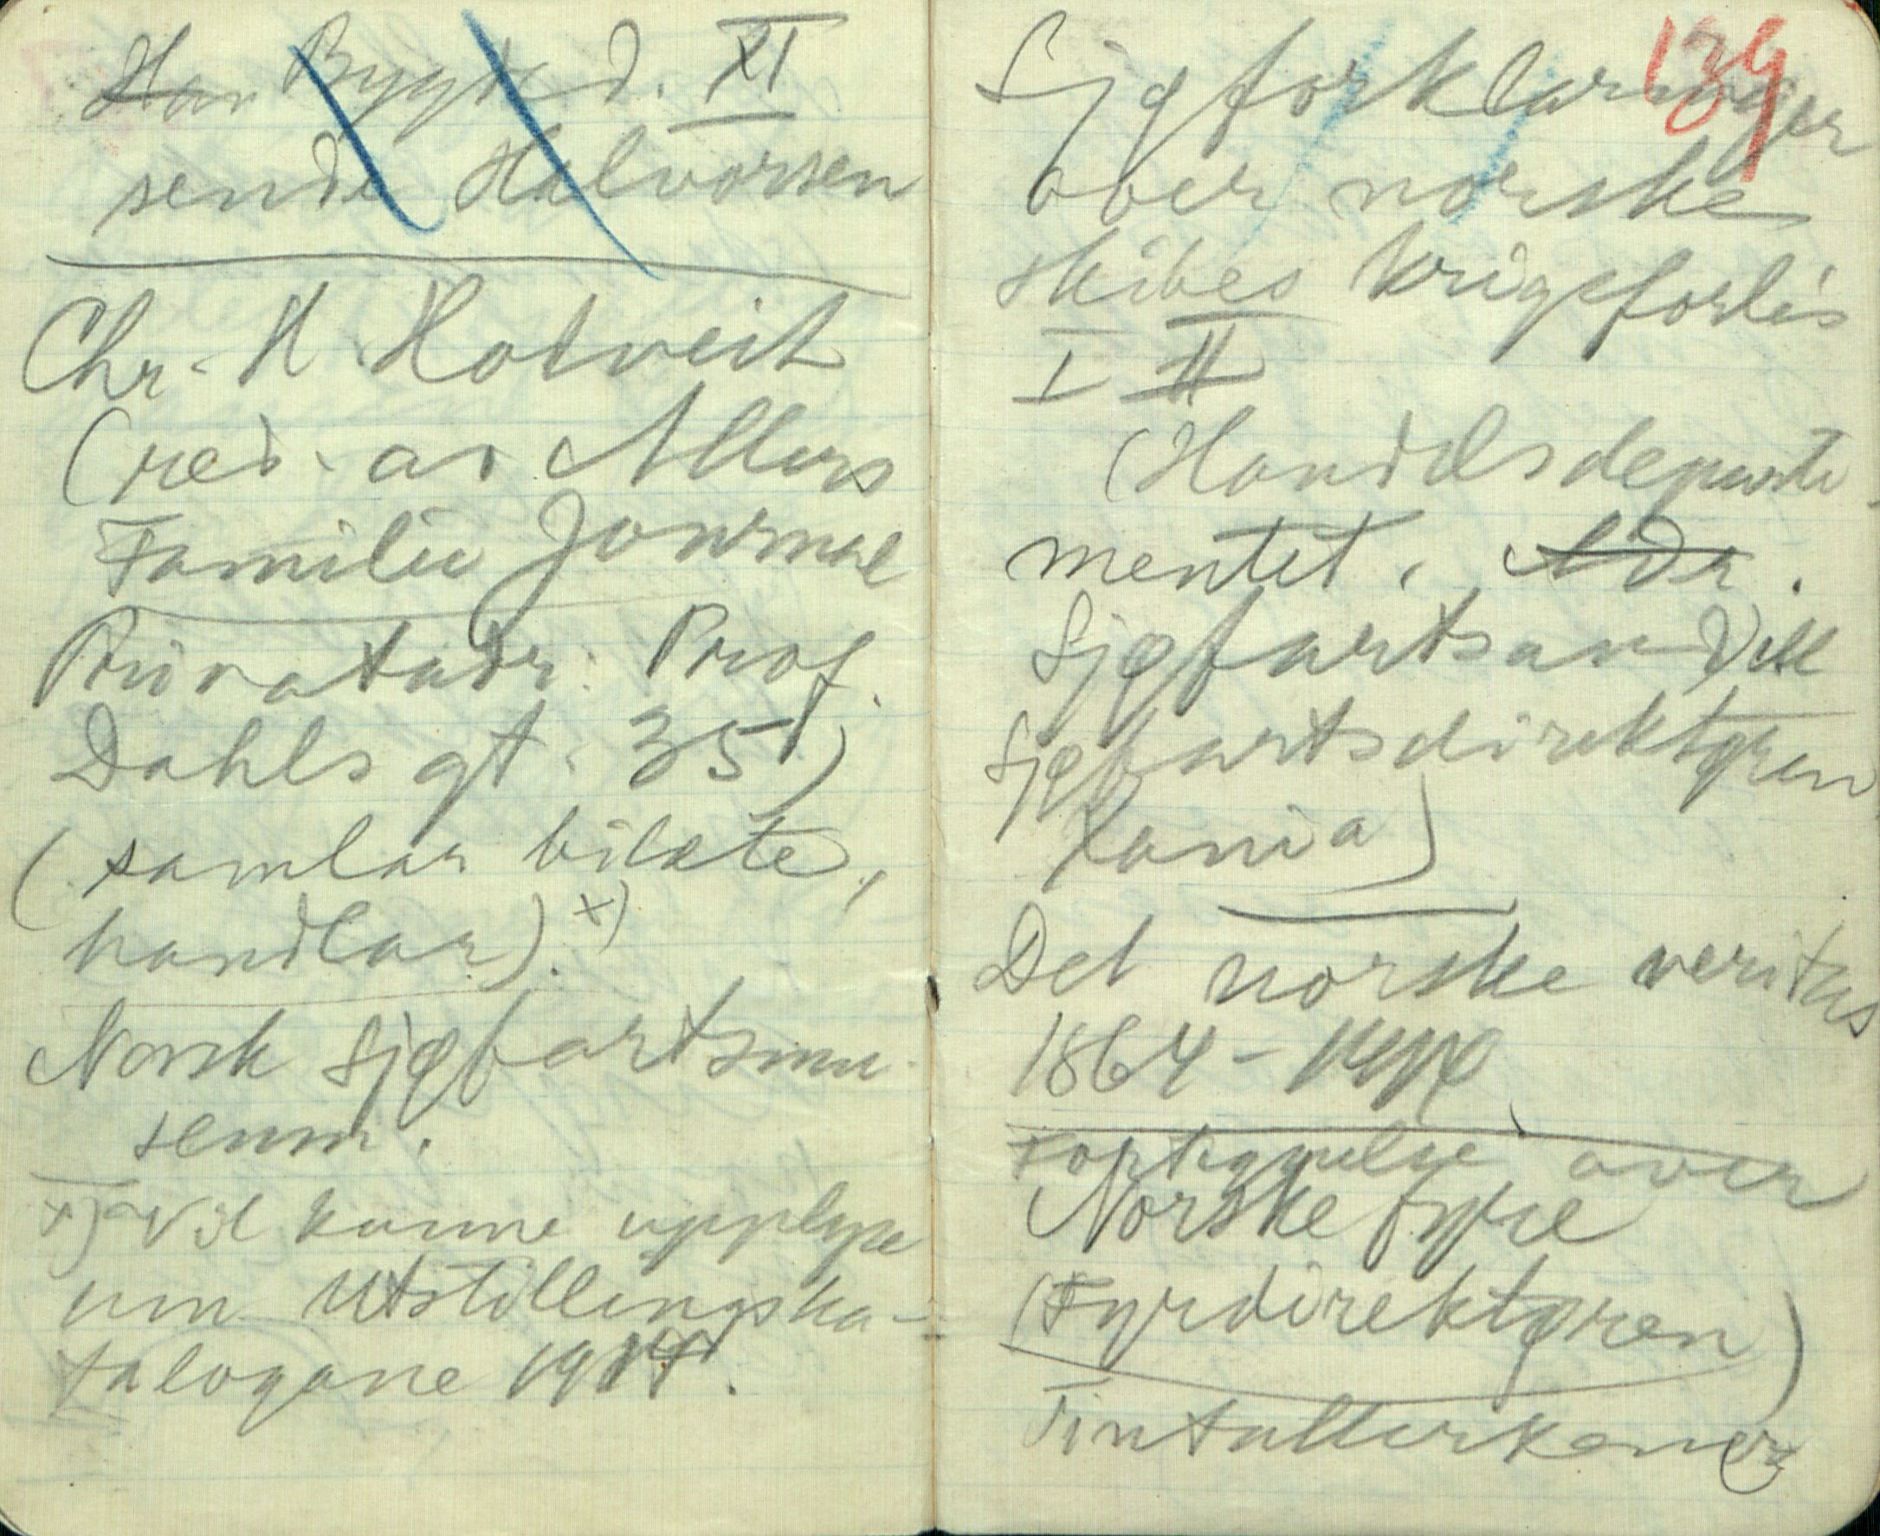 Har Bygd. XI
sende Halvorsen
Chr. H. Holtveit
(red. av Allers
Familie Journal
Privatadr: Prof.
Dahls gt. 35)
(samlar bilæte,
handlar). x)
Norsk Sjøfartsmu-
seum.
x) Vil kunne upplysa
um Utstillingska-
talogane 1914.
139
Sjøforklaringer
over norske
skibes krigsforlis
I II
(Handelsdeparte-
mentet. Adr.
Sjøfartsavdell
Sjøfartsdirektøren
Xania)
Det norske veritas
1864 -
Fortegnelse over
Norske fyre
(Fyrdirektøren)
Tintallerkener